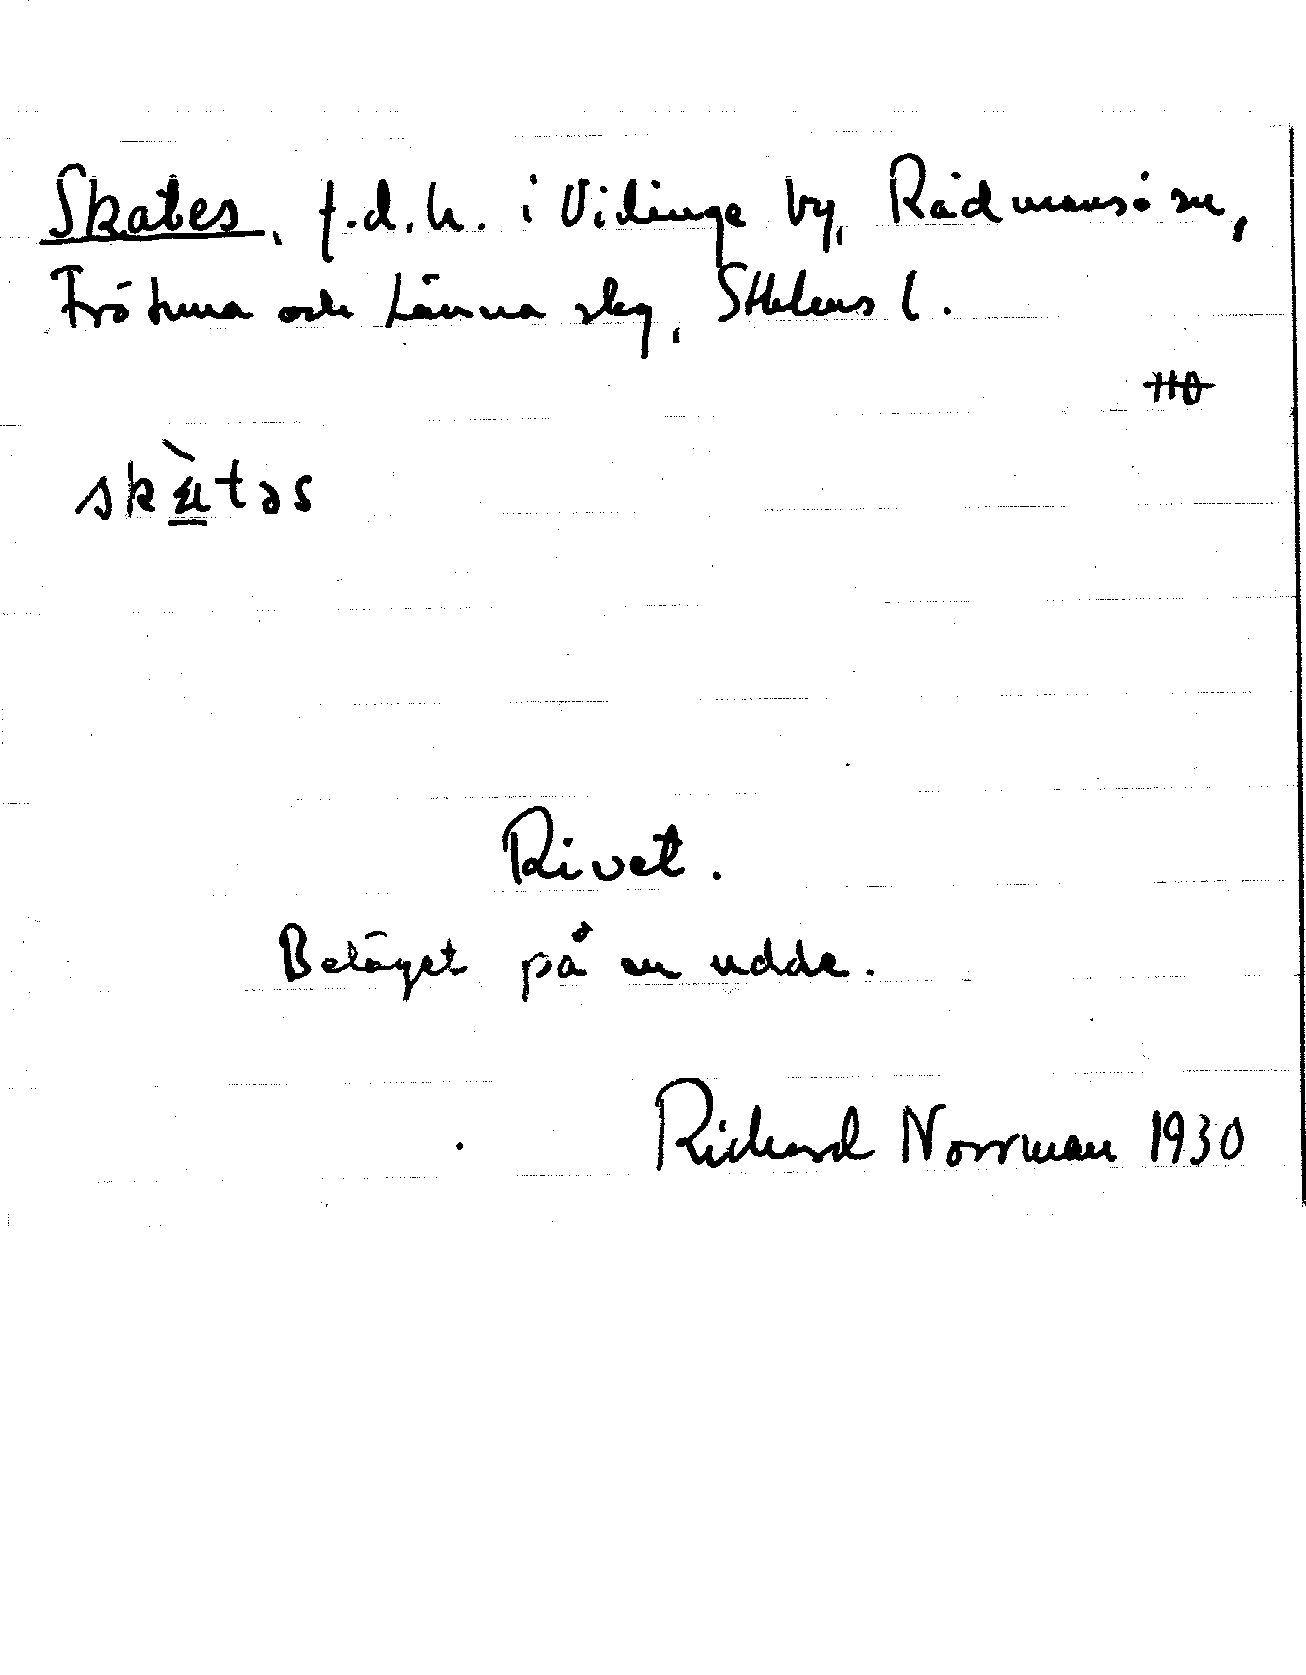 Skates, f.d.h. i Vidinge by, Rådmansö sn,
Frötuna och Länna skg, Sthlms l.
110
skàtəs
Rivet.
Beläget på en udde.
Richard Norrman 1930